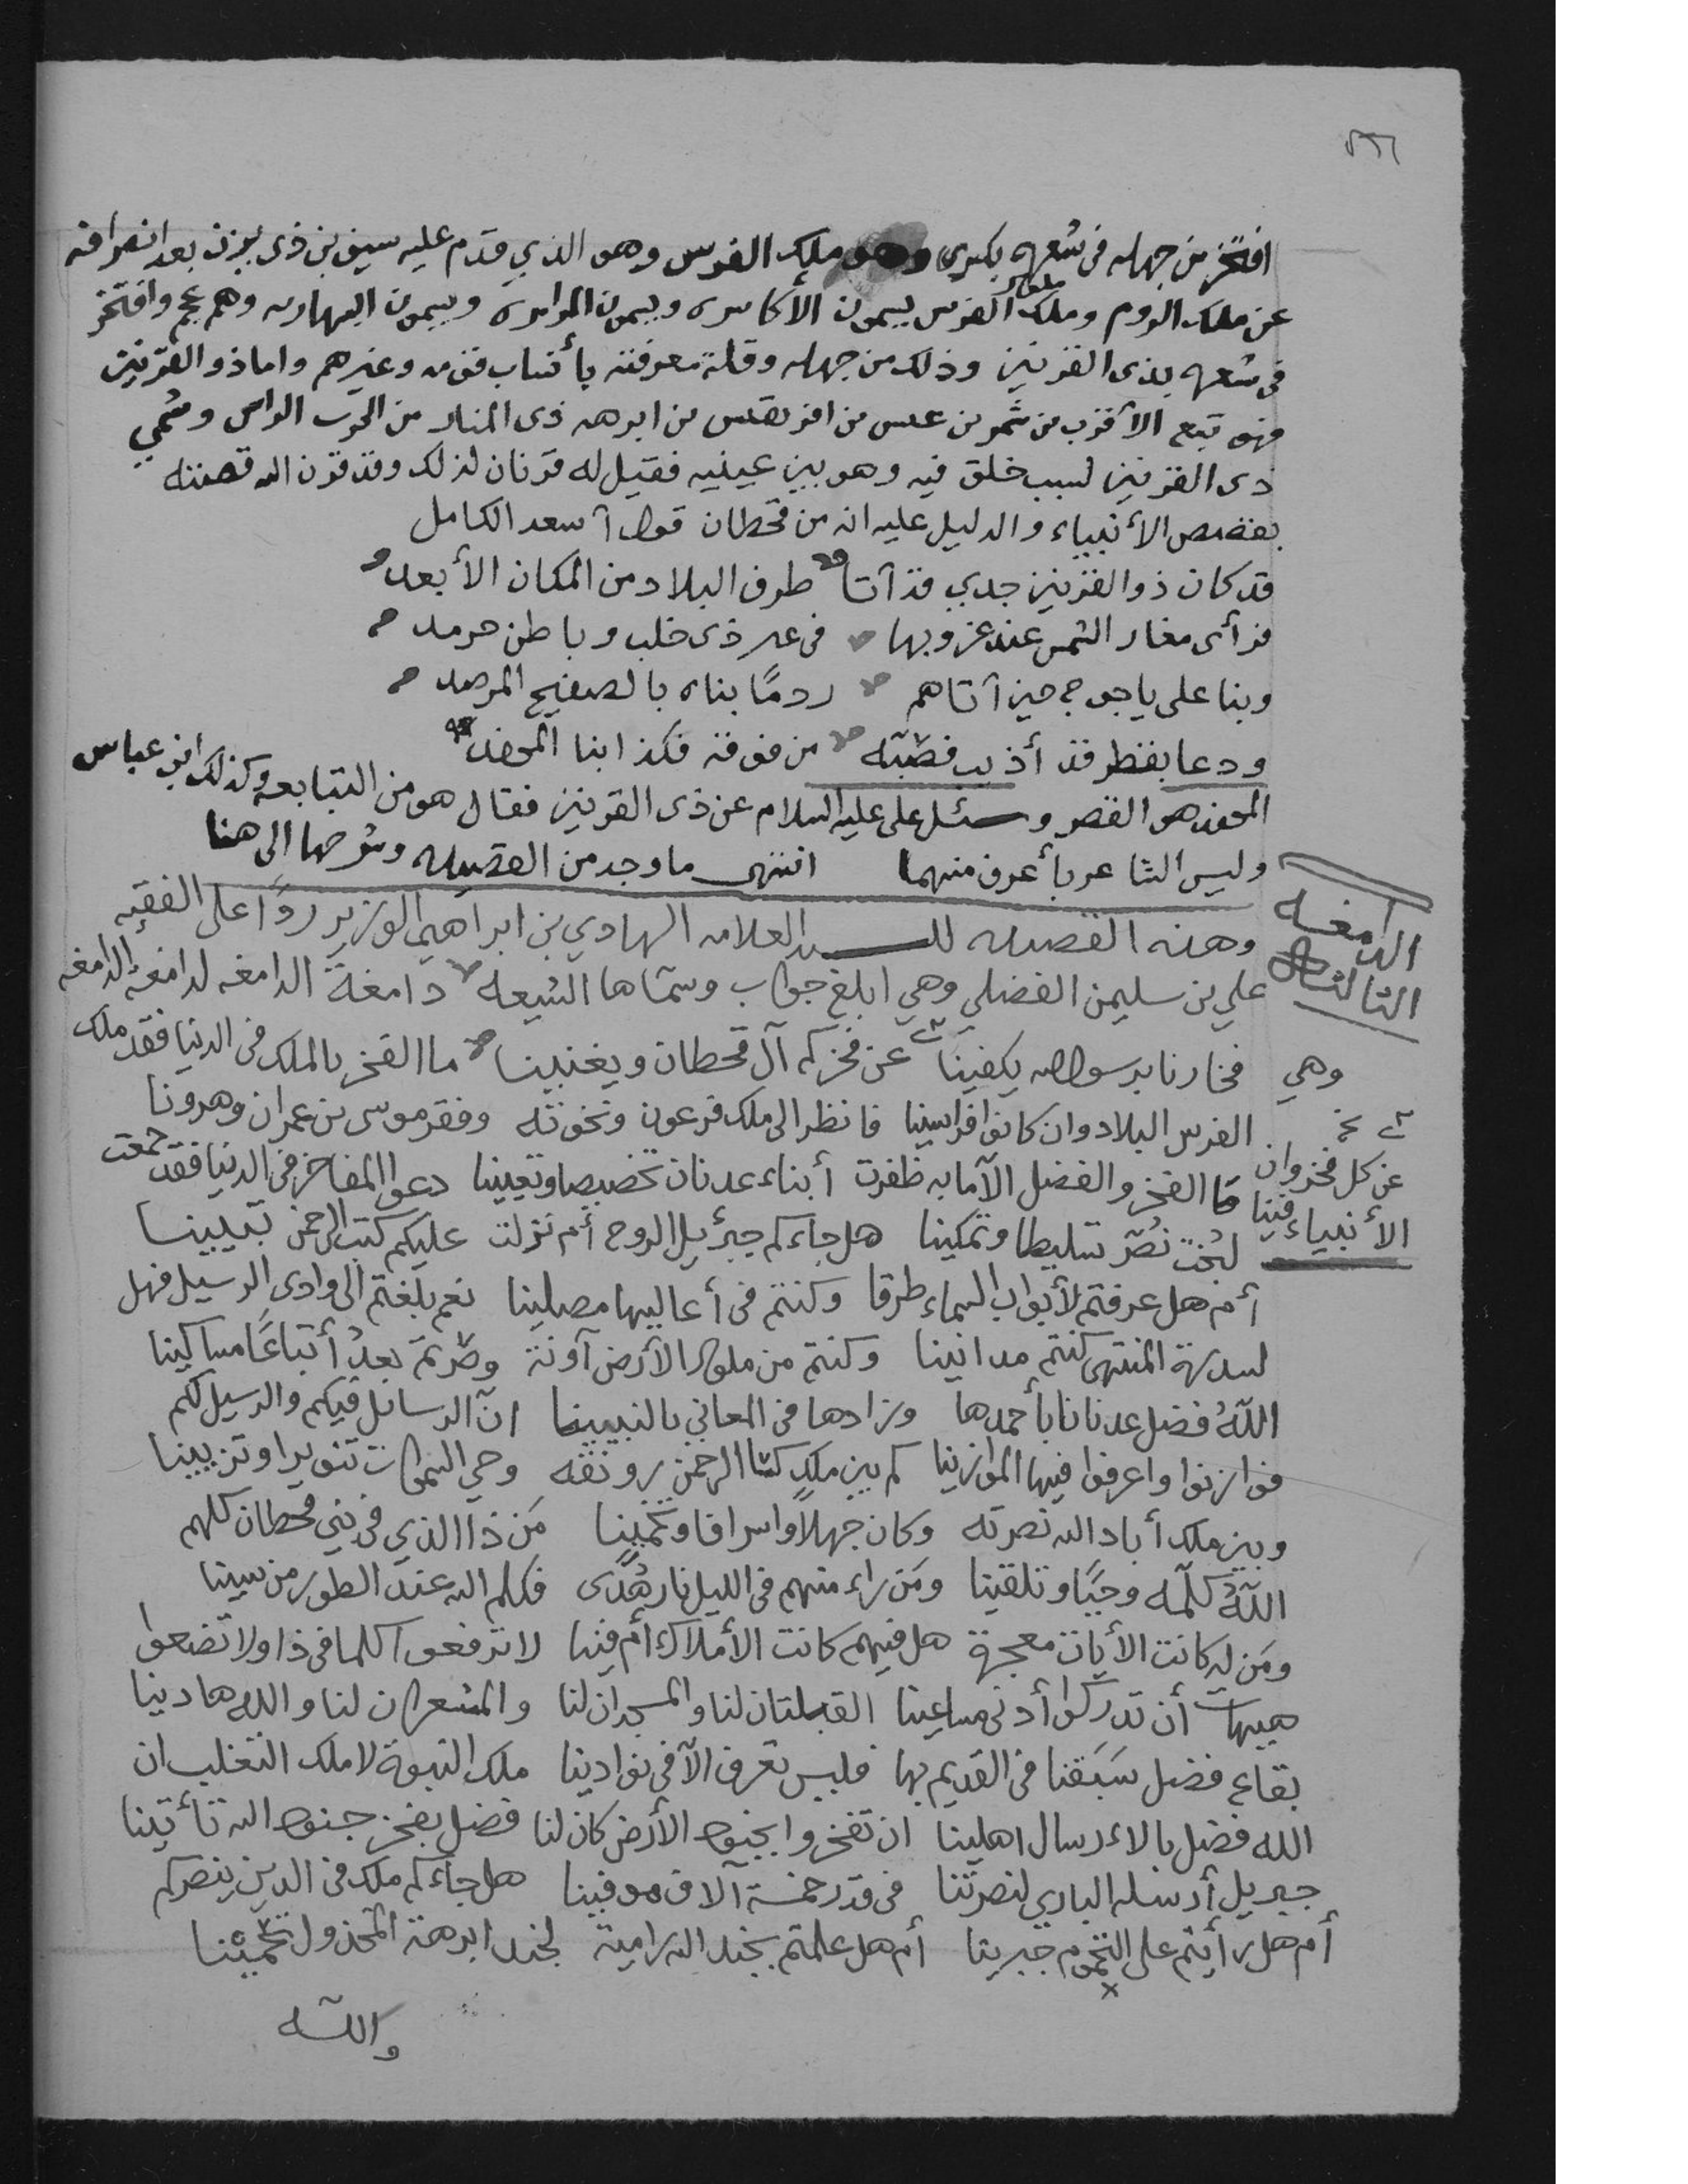 افتخر من جهله في شعره بكسرى وهو ملك الفرس وهو الذي قدم عليه سيف بن ذى يزن بعد انصرافه
عن ملك الروم وملوك الفرس يسمون الأكاسره ويسمون المرامره ويسمون البهارمه وهم عجم وافتخر
فى شعره بذى القرنين وذلك من جهله وقلة معرفته بأنساب قومه وغيرهم واما ذو القرنين
فهو تبع الأقرب من شمر بن عبس بن افريقس بن ابرهه ذى المنار من الحرث الرايش وسمي
ذى القرنين لسبب خلق فيه وهو بين عينيه فقيل له قرنان لذلك وقد قرن الله قصته
بقصص الأنبياء والدليل عليه انه من قحطان قول أسعد الكامل
قد كان ذو القرنين جدي قد أتا طرف البلاد من المكان الأبعد
فرأى مغار الشمس عند غروبها فى عين ذى خلب وباطن حرمد
وبنا على ياجوج حين أتاهم ردمًا بناه بالصفيح المرصد
ودعا بقطر قد أذيب فصبّه من فوقه فكذا بنا المحفد
المحفد هو القصر وسئل على عليه السلام عن ذى القرنين فقال هو من التبابعه وكذلك ابن عباس
وليس الشاعر بأعرف منهما انتهى ما وجد من القصيده وشرحها الى هنا
الدامغه
الثالثه
وهذه القصيده للسيد العلامه الهادي بن ابراهيم الوزير ردًّا على الفقيه
علي بن سليمن الفضلي وهي ابلغ جواب وسمّاها الشيعه دامغة الدامغه لدامغة الدامغه
وهي فخارنا برسول الله يكفينا عن فخركم آل قحطان ويغنينا ما الفخر بالملك فى الدنيا فقد ملك
الفرس البلاد وان كانوا افراسينا فانظر الى ملك فرعون ونخوته وفقر موسى بن عمران وهرونا
عن كل فخر وان
الأنبياء فينا
ما الفخر والفضل الّا ما به ظفرت أبناء عدنان تخصيصا وتعيينا دعوا المفاخر فى الدنيا فقد جمعت
لبُخت نصّر تسليطا وتمكينا هل جاءكم جبرئيل الروح أم نزلت عليكم كتب الرحمن تبيينا
أم هل عرفتم لأبواب السماء طرقا وكنتم فى أعاليها مصلينا نعم بلغتم الى وادى الرسيل فهل
لسدرة المنتهى كنتم مدانينا وكنتم من ملوك الأرض آونة وصرتم بعدُ أتباعًا مساكينا
اللهُ فضل عدنانا بأحمدها وزادها فى المعاني بالنبيينا انّ الرسائل فيكم والرسيل لكم
فوازنوا واعرفوا فيها الموازينا كم بين ملكٍ كسا الرحمن رونقه وحي السموات تنويرا وتزيينا
وبين ملك أباد الله نصرته وكان جهلاً واسرافا وتخمينا مَن ذا الذي فى بني قحطان كلهم
اللهُ كلّمه وحيًا وتلقينا ومَن رآء منهم فى الليل نار هُدًى فكلم الله عند الطور من سينا
ومَن له كانت الأيات معجزة هل فيهم كانت الأملاك أم فينا لا ترفعوا كلما فى ذا ولا تضعوا
هيهات أن تدركوا أدنى مساعينا القبلتان لنا والمسجدان لنا والمشعران لنا والله هادينا
بقاع فضل سَبَقنا فى القديم بها فليس تعرف الّا فى نوادينا ملك النبوة لا ملك التغلب ان
الله فضل بالاءرسال اهلينا ان تفخروا بجنود الأرض كان لنا فضل بفخر جنود الله تأتينا
جبريل أرسله الباري لنصرتنا فى قدر خمسة آلاف موفينا هل جاءكم ملك فى الدين ينصركم
أم هل رأيتم على التخوم جبرينا أم هل علمتم بجند الله رامية لجند ابرهة المخذول تخمينا
والله